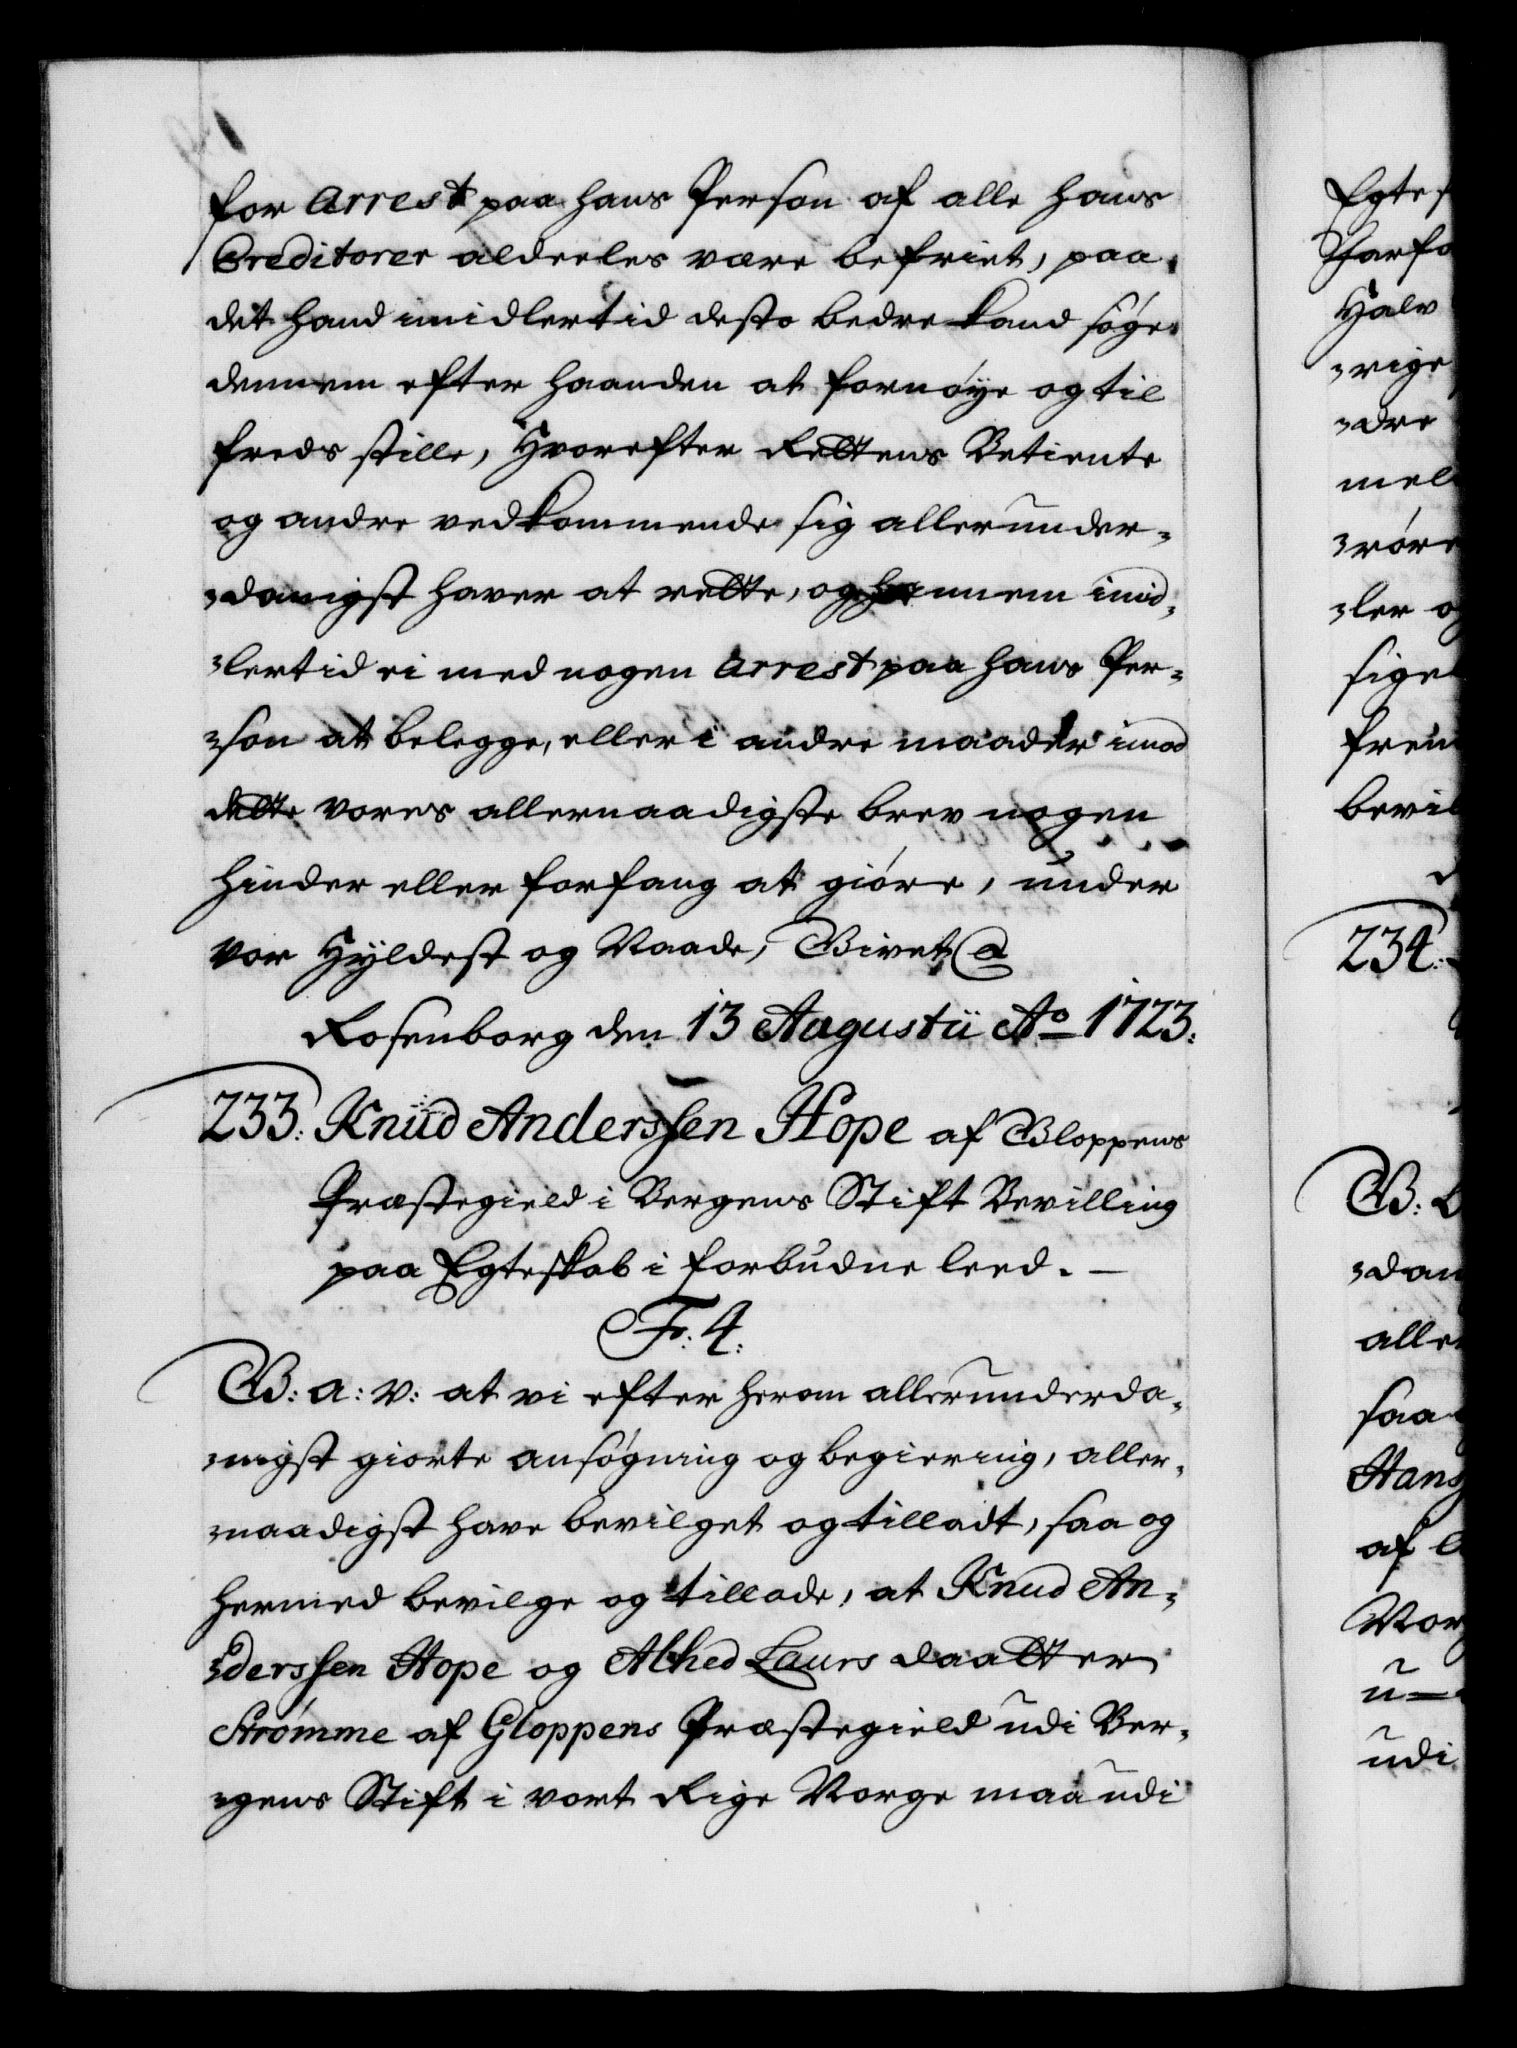 for Arrest paa hans Person af alle hans
Creditorer alderles være befriet, paa
det hand imidlertid desto bedre kand søge
dennem efter haanden at fornøye og til
freds stille, Hvorefter Rettens Betiente
og andre vedkommende sig allerunder-
-danigst haver at rette, og hannem imid-
-lertid ei med nogen Arrest paa hans Per-
-son at belegge, eller i andre maader imod
dette vores allernaadigste brev nogen
hinder eller forfang at giøre, under
vor Hyldest og Naade, Givet
Rosenborg den 13 Augustii Ao 1723.
233. Knud Anderssen Hope af Gloppens
Præstegield i Bergens Stift Bevilling
paa Egteskab i forbudne leed. —
Fr: 4.
G: a: v: at vi efter herom allerunderda-
-nigst giorte ansøgning og begiering, aller-
-naadigst have bevilget og tilladt, saa og
hermed bevilge og tillade, at Knud An-
-derssen Hope og Alhed Laurs daatter
Strømme af Gloppens Præstegield udi Ber-
-gens Stift i vort Rige Norge maa udi
Egtes
Halv
-rige
-dre
mel
-røre
-ler og
sige
frem
bevil
234.
G:
-dan
alle
saa
Hans
af
Nor
u=
udi